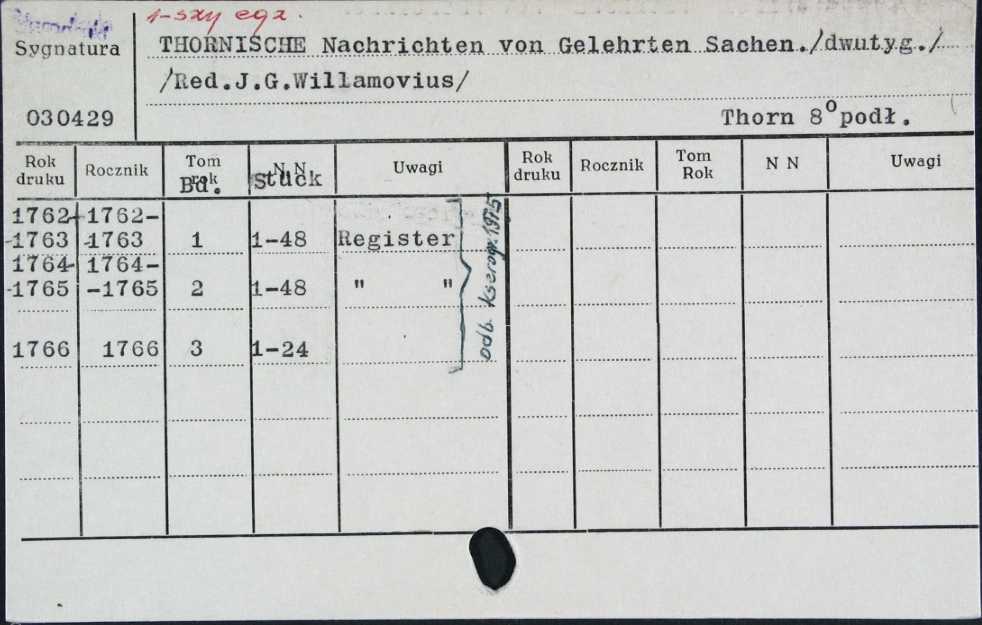 1-szy egz.
Sygnatura
THORNISCHE Nachrichten von Gelehrten Sachen./dwutyg./
/Red.J.G.Willamovius/
030429
Thorn 8⁰podł.
Rok druku Rocznik Tom rok Bd. N N Stück Uwagi Rok druku Rocznik Tom Rok N N Uwagi
1762- 1762-
-1763 -1763 1 1-48 Register
1764- 1764-
-1765 -1765 2 1-48 " "
1766 1766 3 1-24
odb. kserogr. 1975